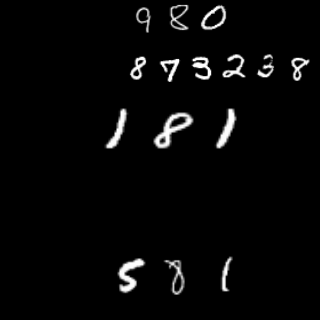 980
873238
181
581